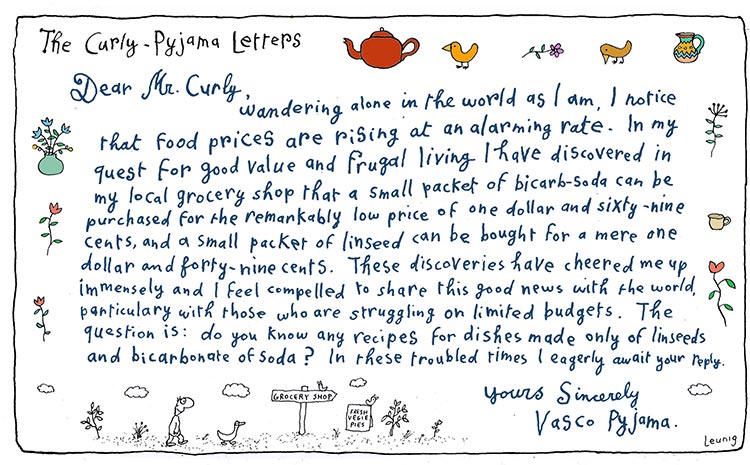 The Curly-Pyjama Letters
Dear Mr. Curly,
wandering alone in the world as I am, I notice
that food prices are rising at an alarming rate. In my
quest for good value and frugal living I have discovered in
my local grocery shop that a small packet of bicarb-soda can be
purchased for the remarkably low price of one dollar and sixty-nine
cents, and a small packet of linseed can be bought for a mere one
dollar and forty-nine cents. These discoveries have cheered me up
immensely and I feel compelled to share this good news with the world,
particulary with those who are struggling on limited budgets. The
question is: do you know any recipes for dishes made only of linseeds
and bicarbonate of soda? In these troubled times I eagerly await your reply.
Yours Sincerely
Vasco Pyjama.
GROCERY SHOP
FRESH
VEGIE
PIES
Leunig